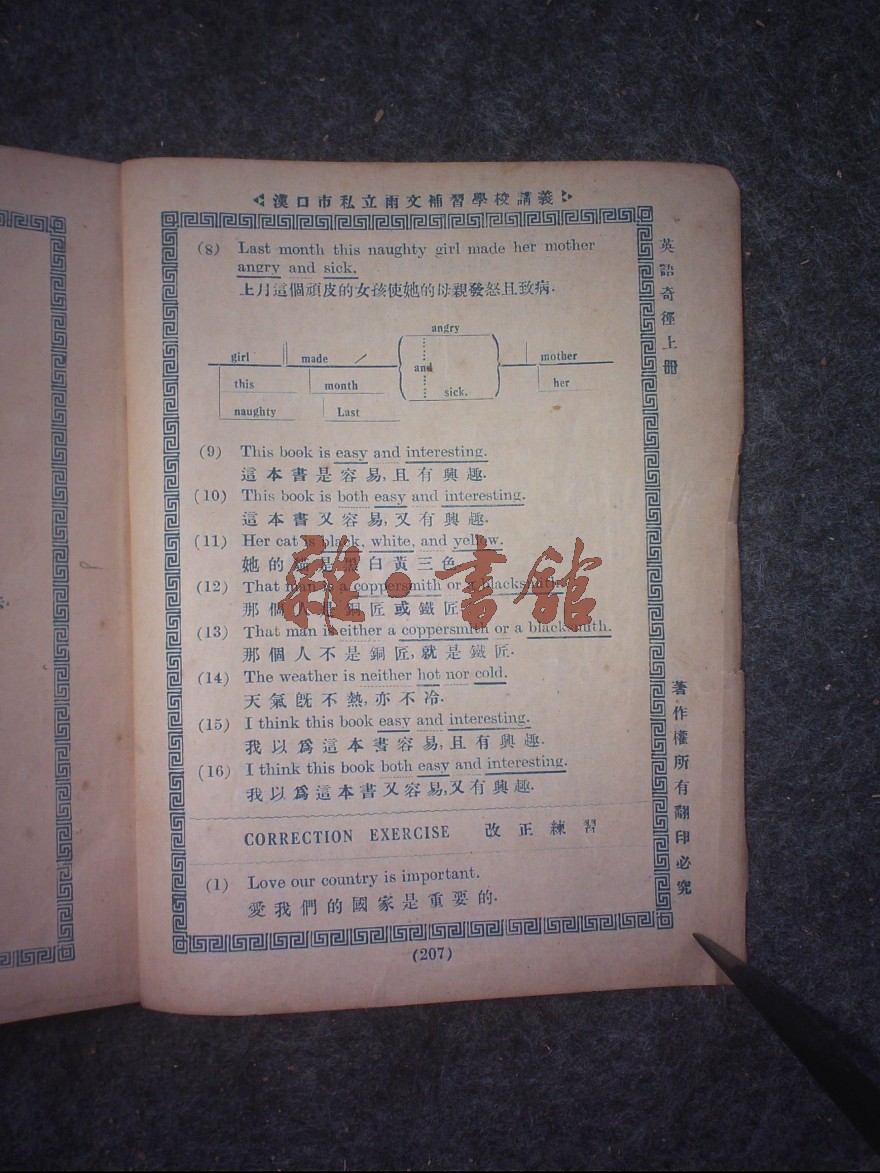 漢口市私立雨文補習學校講義
英語奇徑上冊
(8) Last month this naughty girl made her mother
angry and sick.
上月這個頑皮的女孩使她的母親發怒且致病.
angry
girl made and mother
this month sick. her
naughty Last
(9) This book is easy and interesting.
這本書是容易,且有興趣.
(10) This book is both easy and interesting.
這本書又容易,又有興趣.
(11) Her cat is black, white, and yellow.
她的貓是黑白黃三色
(12) That man is a coppersmith or a blacksmith.
那個人是銅匠或鐵匠
(13) That man is either a coppersmith or a blacksmith.
那個人不是銅匠,就是鐵匠.
(14) The weather is neither hot nor cold.
天氣旣不熱,亦不冷.
(15) I think this book easy and interesting.
我以爲這本書容易,且有興趣.
(16) I think this book both easy and interesting.
我以爲這本書又容易,又有興趣.
CORRECTION EXERCISE 改正練習
(1) Love our country is important.
愛我們的國家是重要的.
(207)
著作權所有翻印必究
雜·書館